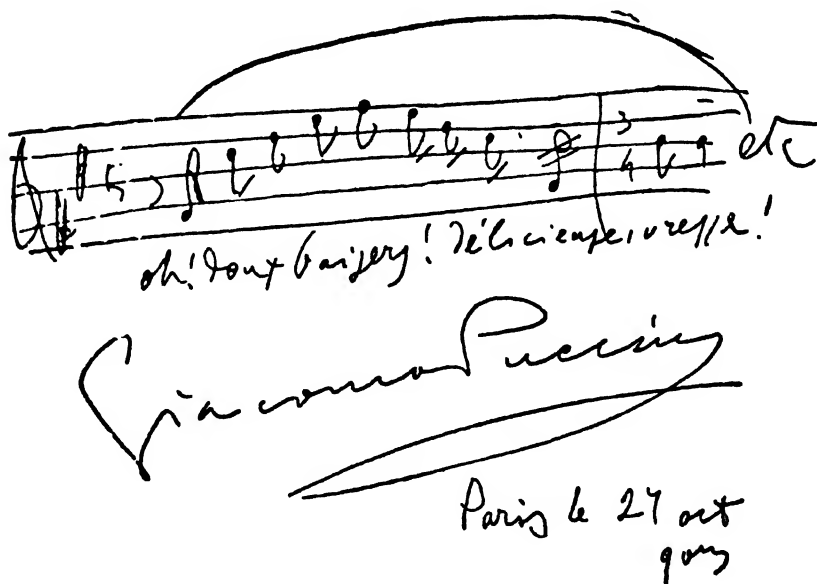 etc
oh! doux baisers! Délicieuse ivresse!
Giacomo Puccini
Paris le 27 oct